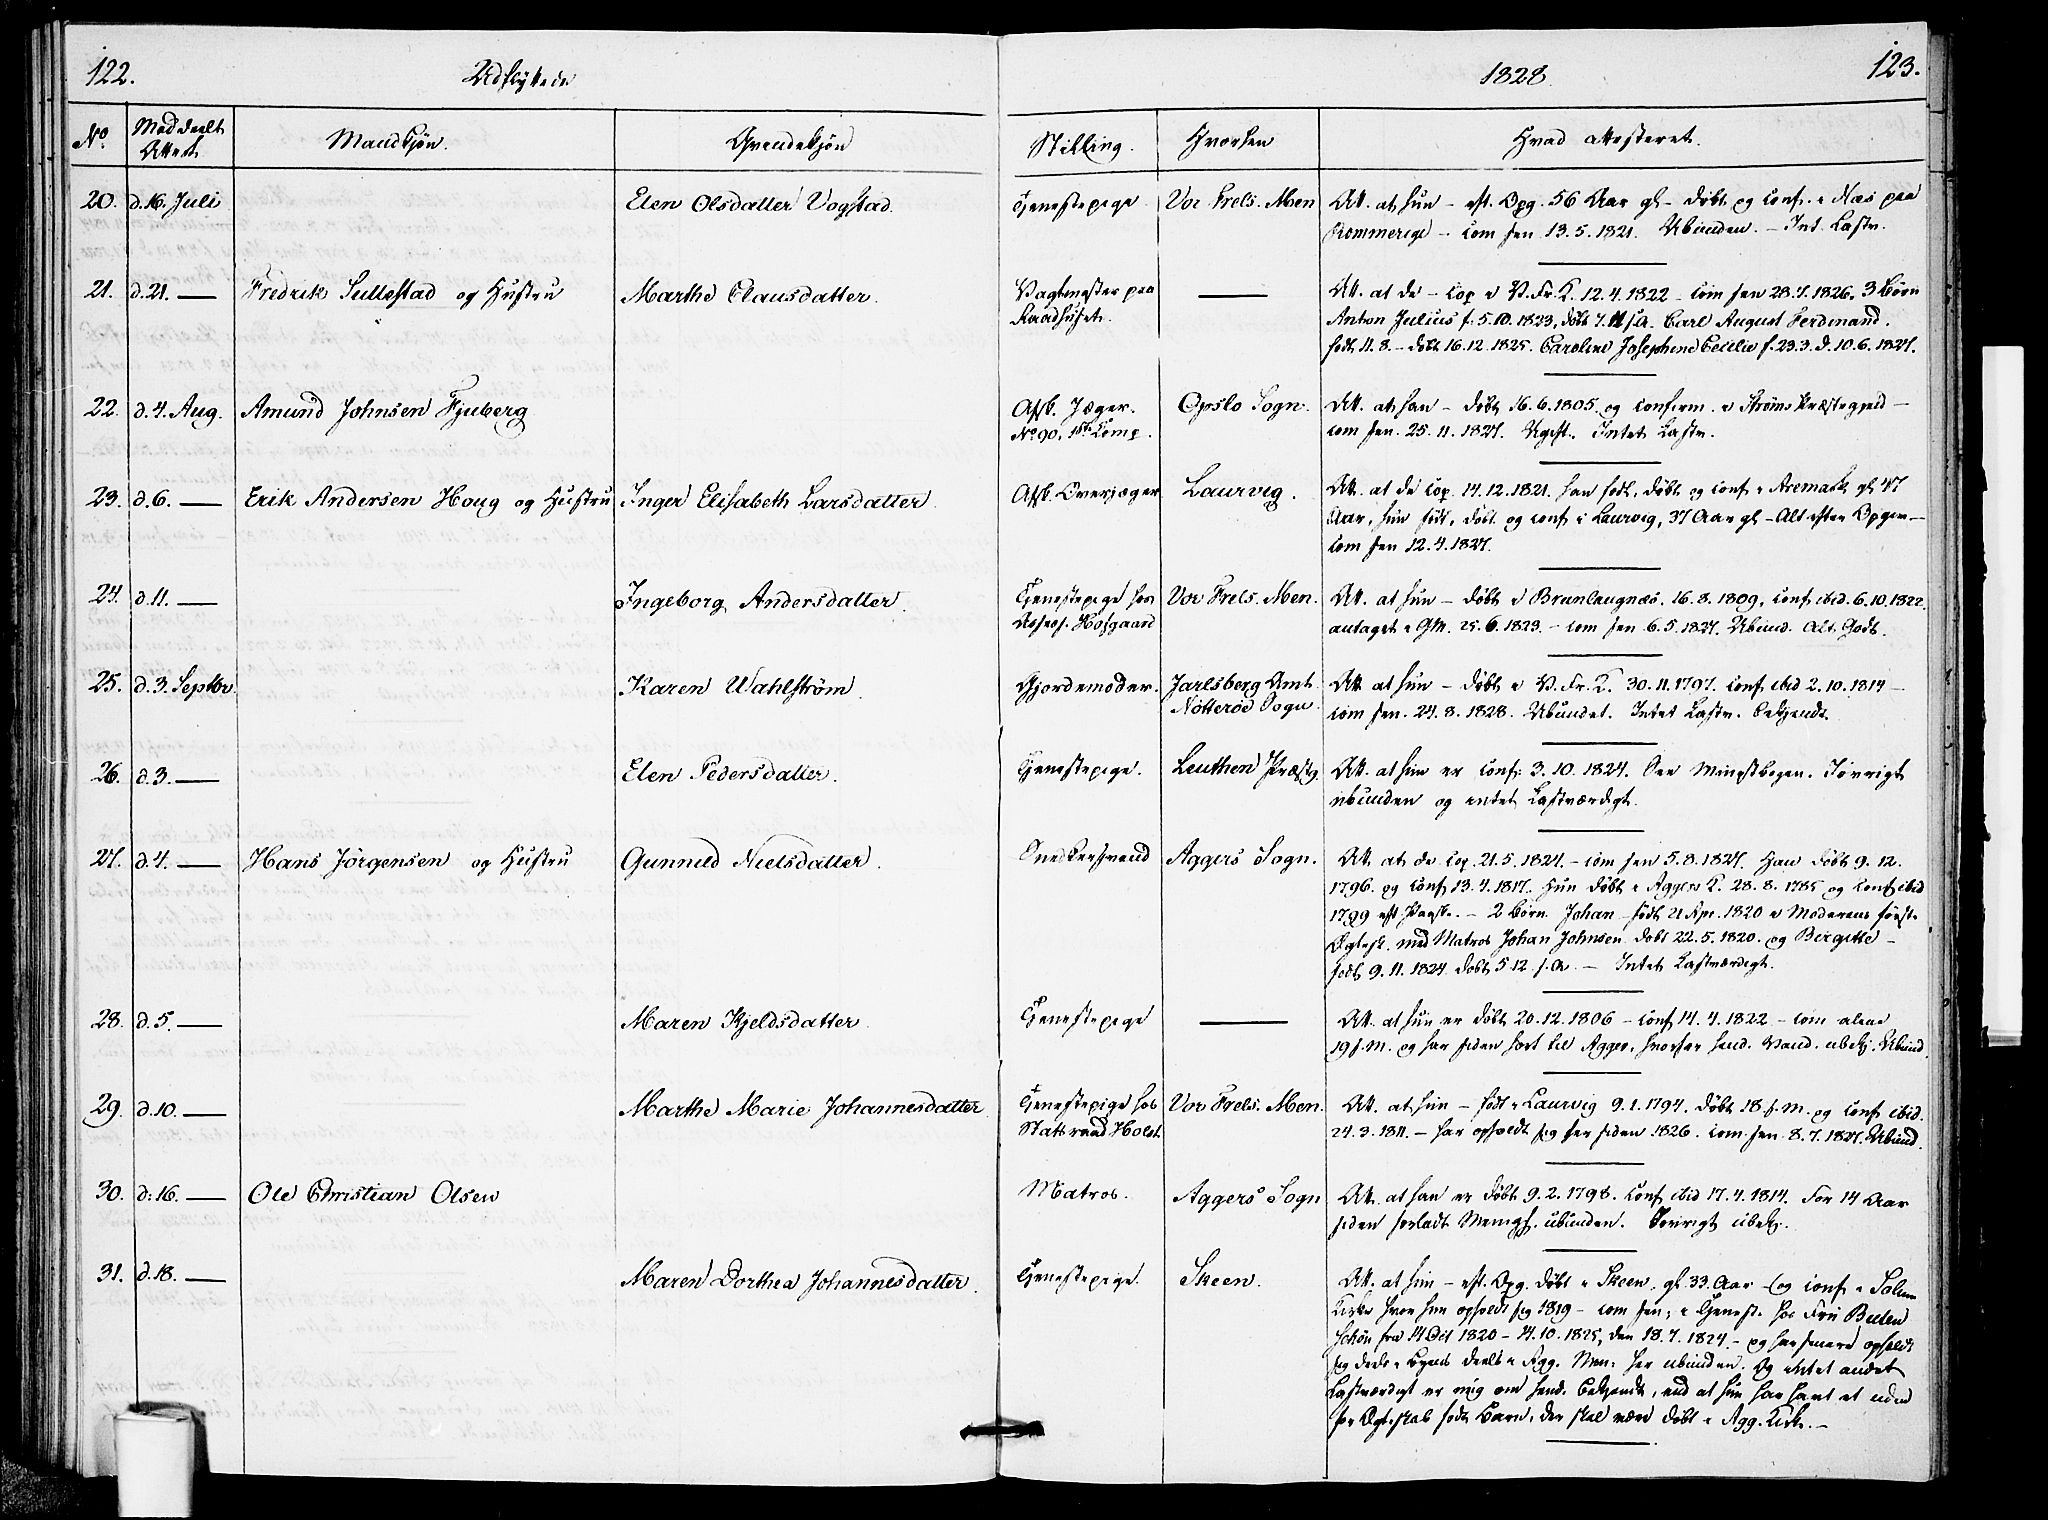 122. Udflyttede
1828. 123.
No. Meddeelt Attest Mandkjön. Qvindekjön Stilling. Hvorhen Hvad attesteret.
20. d. 16. Juli Elen Olsdatter Vogstad. Tjenestepige Vor Frels. Men Att. at hun - eft. Opg. 56 Aar gl - döbt og conf. i Næs paa
Rommerige - com her 13.5.1821. Ubunden. - Int. Lastv.
21. d. 21. — Fredrik Sullestad og Hustru Marthe Clausdatter. Vagtmester paa — Att. at de - cop i V. Fr. K. 12.4.1822 - com her 28.7.1826. 3 Börn
Raadhuset. Anton Julius f. 5.10.1823, döbt 7.11 s.A. Carl August Ferdinand.
födt 11.8. - döbt 16.12.1825. Caroline Josephine Cecilie f. 23.3. d. 10.6.1827.
22. d. 4. Aug. Amund Johnsen Fjuberg Afsk. Jæger. Opslo Sogn. Att. at han - döbt 16.6.1805 og confirm. i Ströms Præstegjeld -
No 90. 1ste Comp. com her 25.11.1827. Ugift. Intet Lastv.
23. d. 6. — Erik Andersen Houg og Hustru Inger Elisabeth Larsdatter. Afsk. Overjæger Laurvig. Att. at de cop. 14.12.1821. han födt, döbt og conf i Aremark gl 47
Aar, hun födt, döbt og conf i Laurvig, 37 Aar gl - Alt efter Opgiv -
com her 12.4.1827.
24. d. 11. — Ingeborg Andersdatter. Tjenestepige hos Vor Frels. Men. Att. at hun - döbt i Brunlaugnæs. 16.8.1809, conf ibid. 6.10.1822.
Assess. Hofgaard antaget i GM. 25.6.1823. - com her 6.5.1827. Ubund. Alt Godt.
25. d. 3. Septbr Karen Wahlström. Gjordemoder. Jarlsberg Amt Att at hun - döbt i V. Fr. K. 30.11.1797. conf ibid 2.10.1814 -
Nötteröe Sogn com her. 24.8.1828. Ubundet. Intet Lastv. bekjendt.
26. d. 3. — Elen Pedersdatter. Tjenestepige. Leuthen Præstg Att. at hun er conf: 3.10.1824. See Mingstbogen. Iövrigt
ubunden og intet Lastværdigt.
27. d. 4. — Hans Jörgensen og Hustru Gunnild Nielsdatter. Snedkersvend Aggers Sogn. Att. at de cop. 21.5.1824. - com her 5.8.1827. Han döbt 9.12.
1796. og conf 13.4.1817. Hun döbt i Aggers K. 28.8.1785 og conf ibid
1799 eft Paaske. - 2 Börn. Johan - födt 21 Apr. 1820 i Moderens förste
Ægtesk. med Matros Johan Johnsen. döbt 22.5.1820. og Birgitte -
födt 9.11.1824 döbt 5 12 s.A. - Intet Lastværdigt.
28. d. 5. — Maren Kjeldsdatter. Tjenestepige — Att. at hun er döbt 20.12.1806 - conf 14.4.1822 - com alene
19 s.M. og har siden hört til Agger, hvorfor hend. Vand. ubekj. Ubund.
29. d. 10. — Marthe Marie Johannesdatter Tjenestepige hos Vor Frels. Men. Att. at hun - födt i Laurvig 9.1.1794. döbt 18 s.M. og conf ibid.
Statsraad Holst 24.3.1811. - har opholdt sig her siden 1826. com her 8.7.1827. Ubund.
30. d: 16. — Ole Christian Olsen Matros. Aggers Sogn Att. at han er döbt 9.2.1798. conf ibid 17.4.1814. For 14 Aar
siden forladt Menigh. ubunden. Iövrigt ubekj.
31. d. 18. — Maren Dorthea Johannesdatter. Tjenestepige. Skeen. Att. at hun - eft. Opg. döbt i Skeen, gl 33 Aar - og conf i Solum
Kirke hvor hun opholdt sig 1819 - com her, i Tjenest. hos Fru Bulen
Schön fra 14 Oct 1820 - 14.10.1825, den 18.7.1824 - og har senere opholdt
sig deels i Byens deels i Agg. Men: her ubunden. Og intet andet
Lastværdigt er mig om hend. bekjendt, end at hun har havt et uden
for Ægteskab födt Barn, der skal være döbt i Agg. Kirke. -